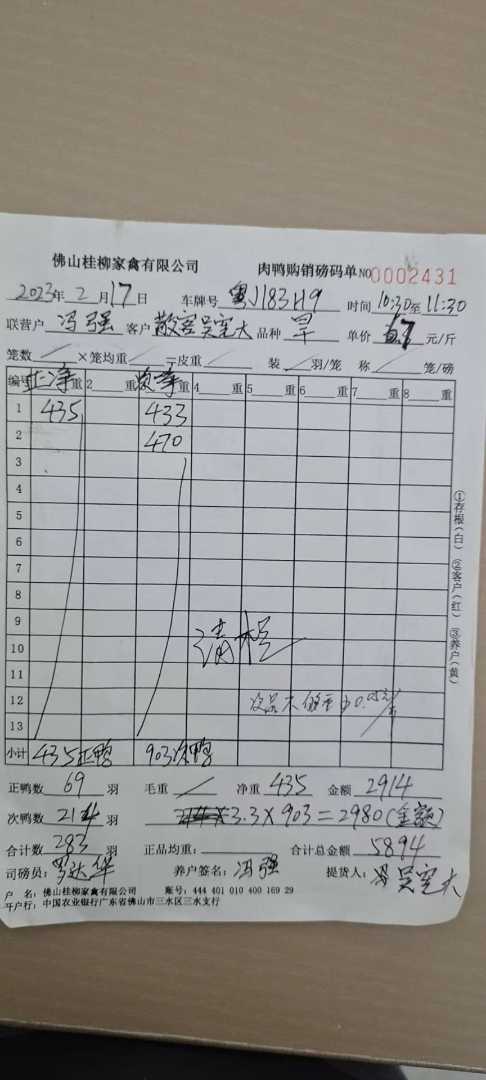 佛山桂柳家禽有限公司 肉鸭购销磅码单 NO 0002431
2023年 2 月 17 日 车牌号 粤J183H9 时间 10:30至 11:30
联营户 冯强 客户 散客吴宪大 品种 旱 单价 元/斤
笼数 ×笼均重 一皮重 装 羽/笼 称 笼/磅
编号 正净重 2 重 次净重 4 重 5 重 6 重 7 重 8 重
1 435 433
2 470
3
4
5
6
7
8
9
10 清栏
11
12
13
小计 435正鸭 903次鸭
正鸭数 69 羽 毛重 净重 435 金额 2914
次鸭数 214 羽 3.3×903=2980(金额)
合计数 283 羽 正品均重: 合计总金额 5894
司磅员: 罗达华 养户签名: 冯强 提货人: 吴宪大
户 名: 佛山桂柳家禽有限公司 账号: 444 401 010 400 169 29
开户行: 中国农业银行广东省佛山市三水区三水支行
①存根(白) ②客户(红) ③养户(黄)